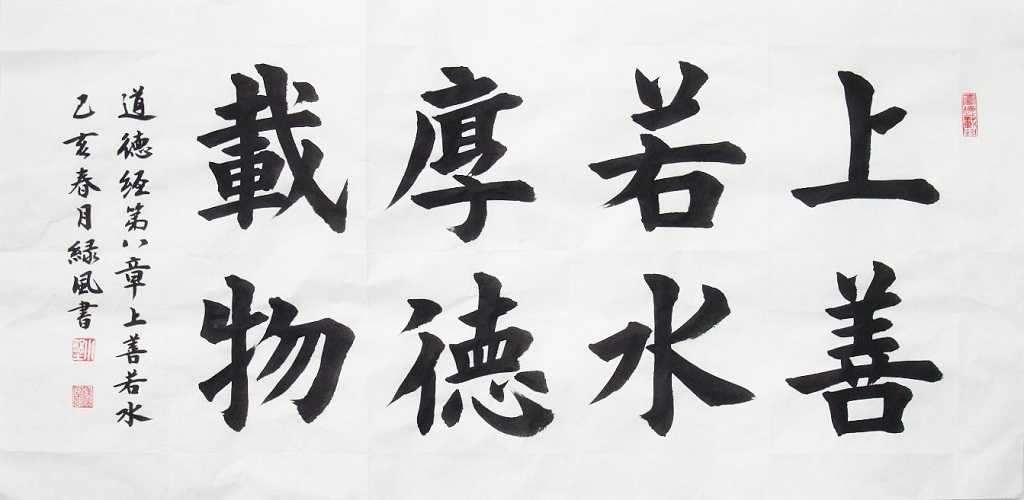 上善
若水
厚德
載物
道德經第八章上善若水
己亥春月緑風書